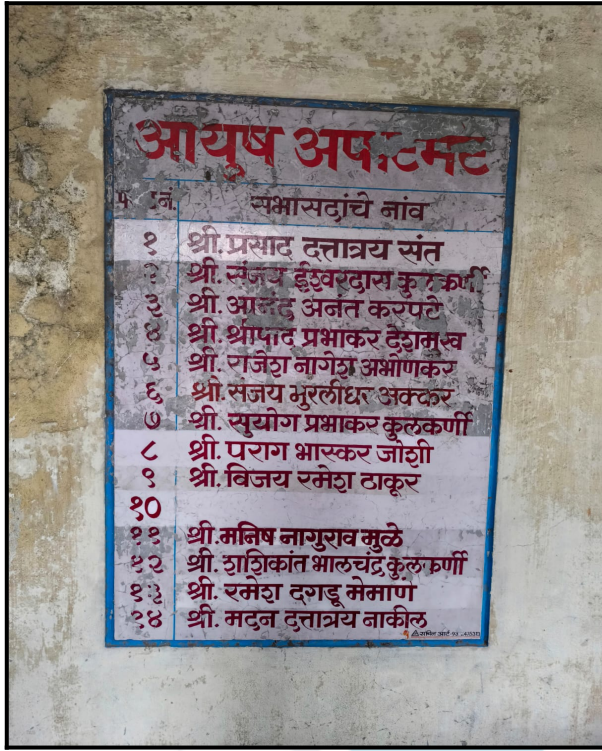 आयुष अपार्टमेंट
सभासदांचे नांव
१ श्री. प्रसाद दत्तात्रय संत
२ श्री. संजय ईश्वरदास कुलकर्णी
३ श्री. आनंद अनंत करपटे
४ श्री. श्रीपाद प्रभाकर देशमुख
५ श्री. राजेश नागेश अभोणकर
६ श्री. संजय मुरलीधर अक्कर
७ श्री. सुयोग प्रभाकर कुलकर्णी
८ श्री. पराग भास्कर जोशी
९ श्री. विजय रमेश ठाकूर
१०
११ श्री. मनिष नागुराव मुळे
१२ श्री. शशिकांत भालचंद्र कुलकर्णी
१३ श्री. रमेश दगडू मेमाणे
१४ श्री. मदन दत्तात्रय नाकील